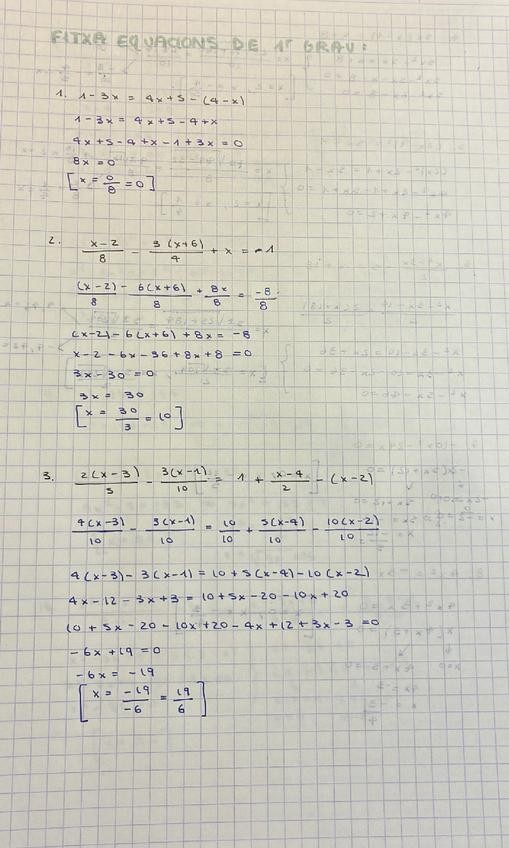 FITXA EQUACIONS DE 1r GRAU:
1. 1-3x = 4x+5-(4-x)
1-3x = 4x+5-4+x
4x+5-4+x-1+3x=0
8x=0
[x = 0/8 = 0]
2. (x-2)/8 - 3(x+6)/4 + x = -1
(x-2)/8 - 6(x+6)/8 + 8x/8 = -8/8
(x-2)-6(x+6)+8x = -8
x-2-6x-36+8x+8 = 0
3x-30=0
3x = 30
[x = 30/3 = 10]
3. 2(x-3)/5 - 3(x-1)/10 = 1 + (x-4)/2 - (x-2)
4(x-3)/10 - 3(x-1)/10 = 10/10 + 5(x-4)/10 - 10(x-2)/10
4(x-3)-3(x-1) = 10+5(x-4)-10(x-2)
4x-12-3x+3 = 10+5x-20-10x+20
10+5x-20-10x+20-4x+12+3x-3=0
-6x+19=0
-6x = -19
[x = -19/-6 = 19/6]